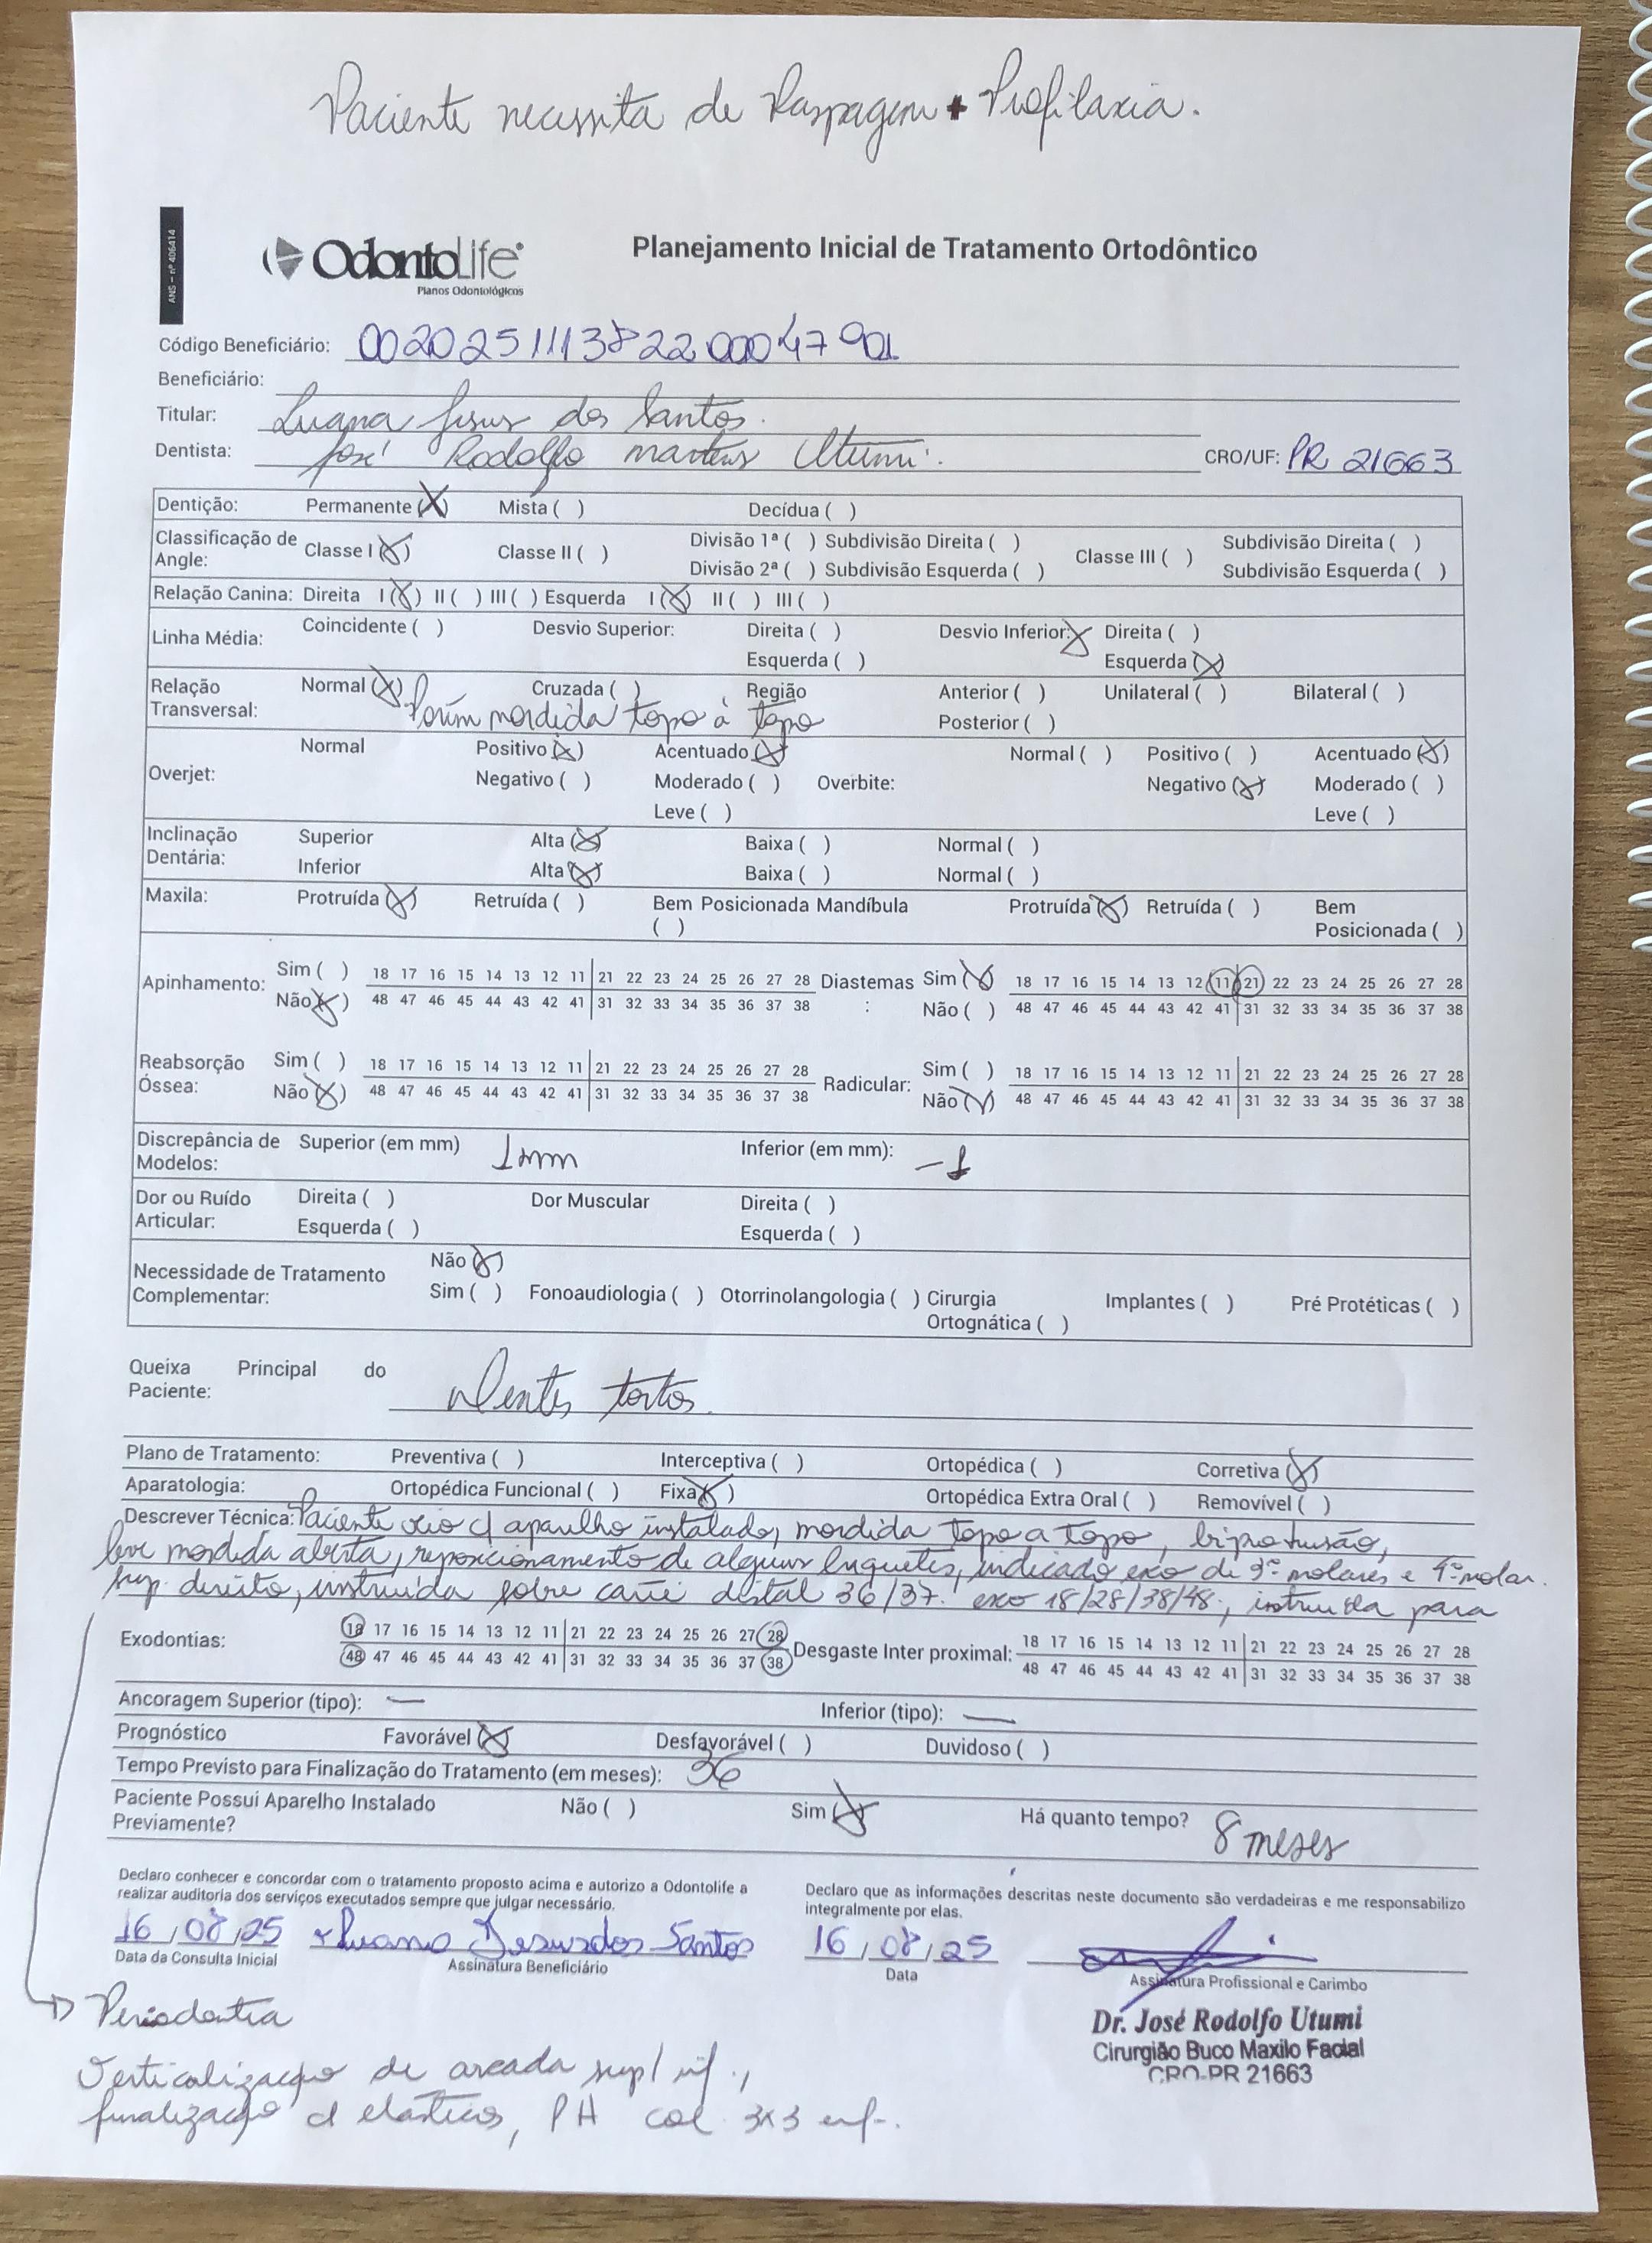 Paciente necessita de Raspagem + Profilaxia.
ANS – nº 406414
OdontoLife®
Planos Odontológicos
Planejamento Inicial de Tratamento Ortodôntico
Código Beneficiário: 0020251113822000047901
Beneficiário:
Titular: Luana Jesus dos Santos.
Dentista: José Rodolfo Martins Utumi. CRO/UF: PR 21663
Dentição: Permanente (X) Mista ( ) Decídua ( )
Classificação de Angle: Classe I (X) Classe II ( ) Divisão 1ª ( ) Subdivisão Direita ( ) Classe III ( ) Subdivisão Direita ( )
Divisão 2ª ( ) Subdivisão Esquerda ( ) Subdivisão Esquerda ( )
Relação Canina: Direita I (X) II ( ) III ( ) Esquerda I (X) II ( ) III ( )
Linha Média: Coincidente ( ) Desvio Superior: Direita ( ) Desvio Inferior: X Direita ( )
Esquerda ( ) Esquerda (X)
Relação Transversal: Normal (X) Cruzada ( ) Região Anterior ( ) Unilateral ( ) Bilateral ( )
Porém mordida topo à topo Posterior ( )
Overjet: Normal Positivo (X) Acentuado (X) Overbite: Normal ( ) Positivo ( ) Acentuado (X)
Negativo ( ) Moderado ( ) Negativo (X) Moderado ( )
Leve ( ) Leve ( )
Inclinação Dentária: Superior Alta (X) Baixa ( ) Normal ( )
Inferior Alta (X) Baixa ( ) Normal ( )
Maxila: Protruída (X) Retruída ( ) Bem Posicionada ( ) Mandíbula Protruída (X) Retruída ( ) Bem Posicionada ( )
Apinhamento: Sim ( ) 18 17 16 15 14 13 12 11 21 22 23 24 25 26 27 28 Diastemas : Sim (X) 18 17 16 15 14 13 12 11 21 22 23 24 25 26 27 28
Não (X) 48 47 46 45 44 43 42 41 31 32 33 34 35 36 37 38 Não ( ) 48 47 46 45 44 43 42 41 31 32 33 34 35 36 37 38
Reabsorção Óssea: Sim ( ) 18 17 16 15 14 13 12 11 21 22 23 24 25 26 27 28 Radicular: Sim ( ) 18 17 16 15 14 13 12 11 21 22 23 24 25 26 27 28
Não (X) 48 47 46 45 44 43 42 41 31 32 33 34 35 36 37 38 Não (X) 48 47 46 45 44 43 42 41 31 32 33 34 35 36 37 38
Discrepância de Modelos: Superior (em mm) 1mm Inferior (em mm): -1
Dor ou Ruído Articular: Direita ( ) Dor Muscular Direita ( )
Esquerda ( ) Esquerda ( )
Necessidade de Tratamento Complementar: Não (X)
Sim ( ) Fonoaudiologia ( ) Otorrinolangologia ( ) Cirurgia Ortognática ( ) Implantes ( ) Pré Protéticas ( )
Queixa Principal do Paciente: Dentes tortos.
Plano de Tratamento: Preventiva ( ) Interceptiva ( ) Ortopédica ( ) Corretiva (X)
Aparatologia: Ortopédica Funcional ( ) Fixa (X) Ortopédica Extra Oral ( ) Removível ( )
Descrever Técnica: Paciente veio c/ aparelho instalado, mordida topo a topo, biprotusão,
leve mordida aberta, reposicionamento de alguns, indicado exo de 3ºs molares e molar
sup. direito, instruída sobre carie distal 36/37. exo 18/28/38/48, instruida para
Exodontias: 18 17 16 15 14 13 12 11 21 22 23 24 25 26 27 28 Desgaste Inter proximal: 18 17 16 15 14 13 12 11 21 22 23 24 25 26 27 28
48 47 46 45 44 43 42 41 31 32 33 34 35 36 37 38 48 47 46 45 44 43 42 41 31 32 33 34 35 36 37 38
Ancoragem Superior (tipo): — Inferior (tipo): —
Prognóstico Favorável (X) Desfavorável ( ) Duvidoso ( )
Tempo Previsto para Finalização do Tratamento (em meses): 36
Paciente Possui Aparelho Instalado Previamente? Não ( ) Sim (X) Há quanto tempo? 8 meses
Declaro conhecer e concordar com o tratamento proposto acima e autorizo a Odontolife a
realizar auditoria dos serviços executados sempre que julgar necessário.
Declaro que as informações descritas neste documento são verdadeiras e me responsabilizo
integralmente por elas.
16/08/25 Luana Jesus dos Santos 16/08/25
Data da Consulta Inicial Assinatura Beneficiário Data Assinatura Profissional e Carimbo
Dr. José Rodolfo Utumi
Cirurgião Buco Maxilo Facial
CRO-PR 21663
→ Periodontia
Verticalização de arcada sup/inf.,
finalização c/ elásticos, PH col. 3x3 inf.